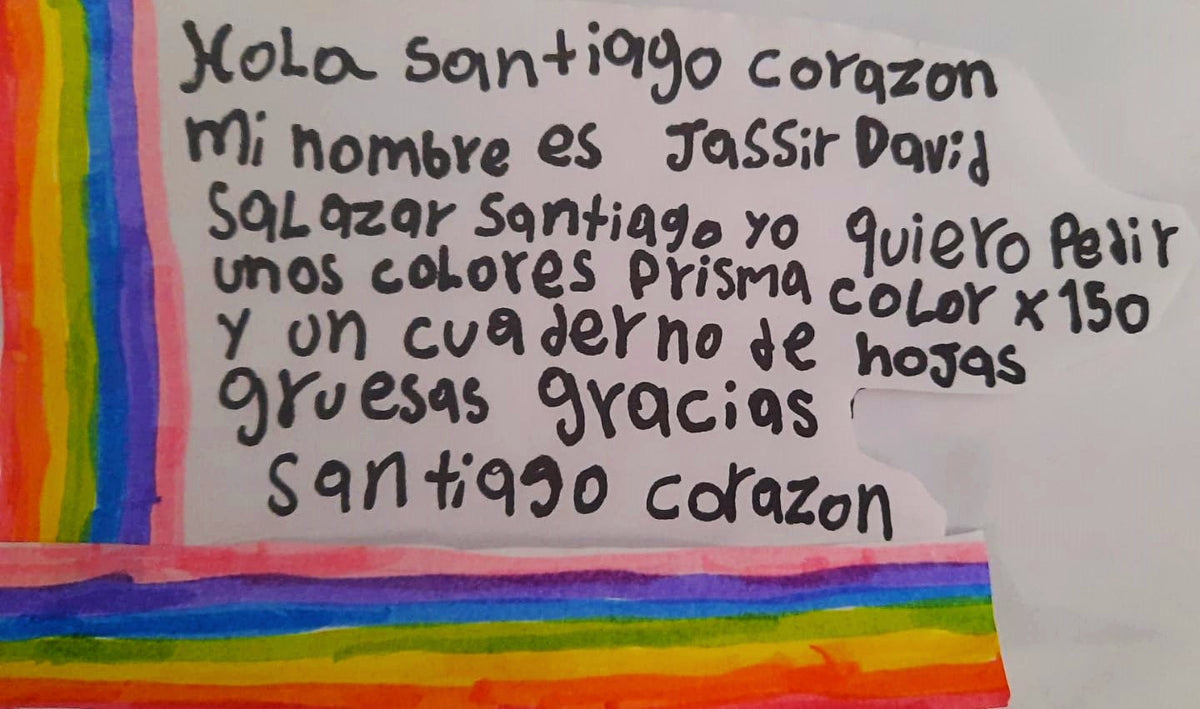 Hola santiago corazon
mi nombre es Jassir David
salazar santiago yo quiero Pedir
unos colores prisma color x 150
y un cuaderno de hojas
gruesas gracias
santiago corazon